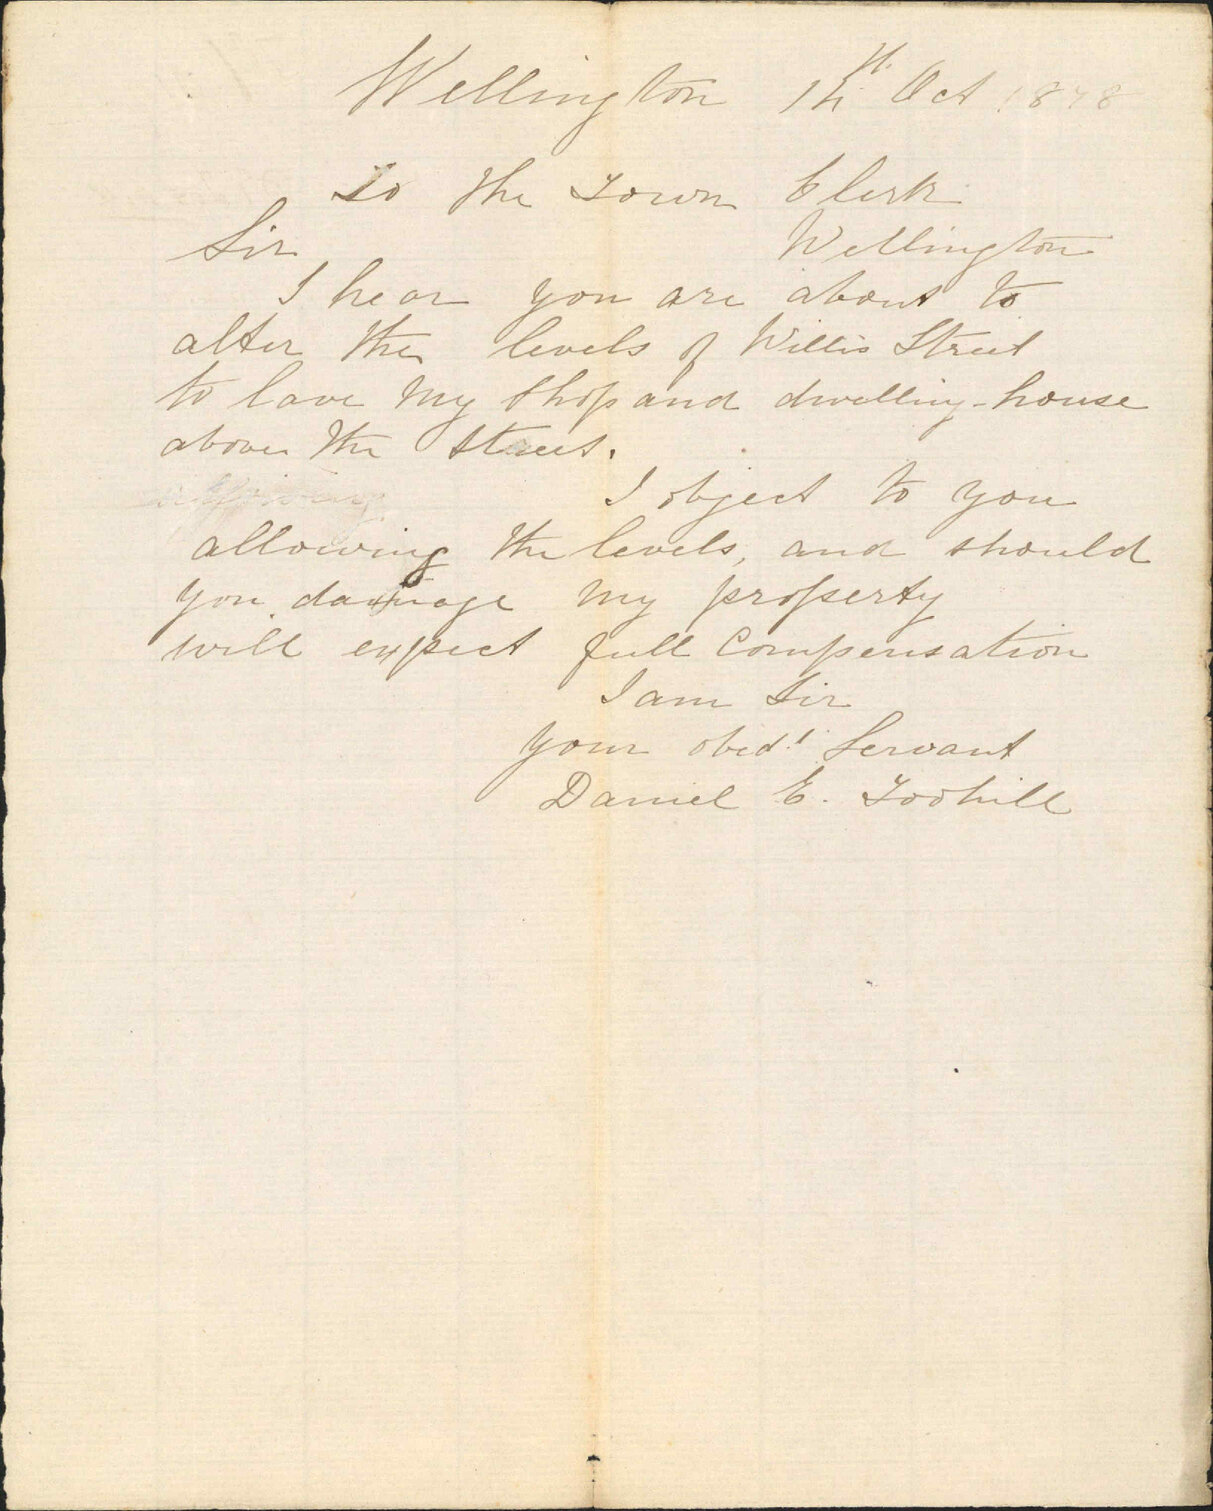 Wellington 14th Oct 1878
To the Town Clerk
Wellington
Sir
I hear you are about to
alter the levels of Willis Street
to lave my Shop and dwelling-house
above the street.
I object to you
allowing the levels, and should
you damage my property
will expect full Compensation
I am Sir
your obedt Servant
Daniel E. Toohill